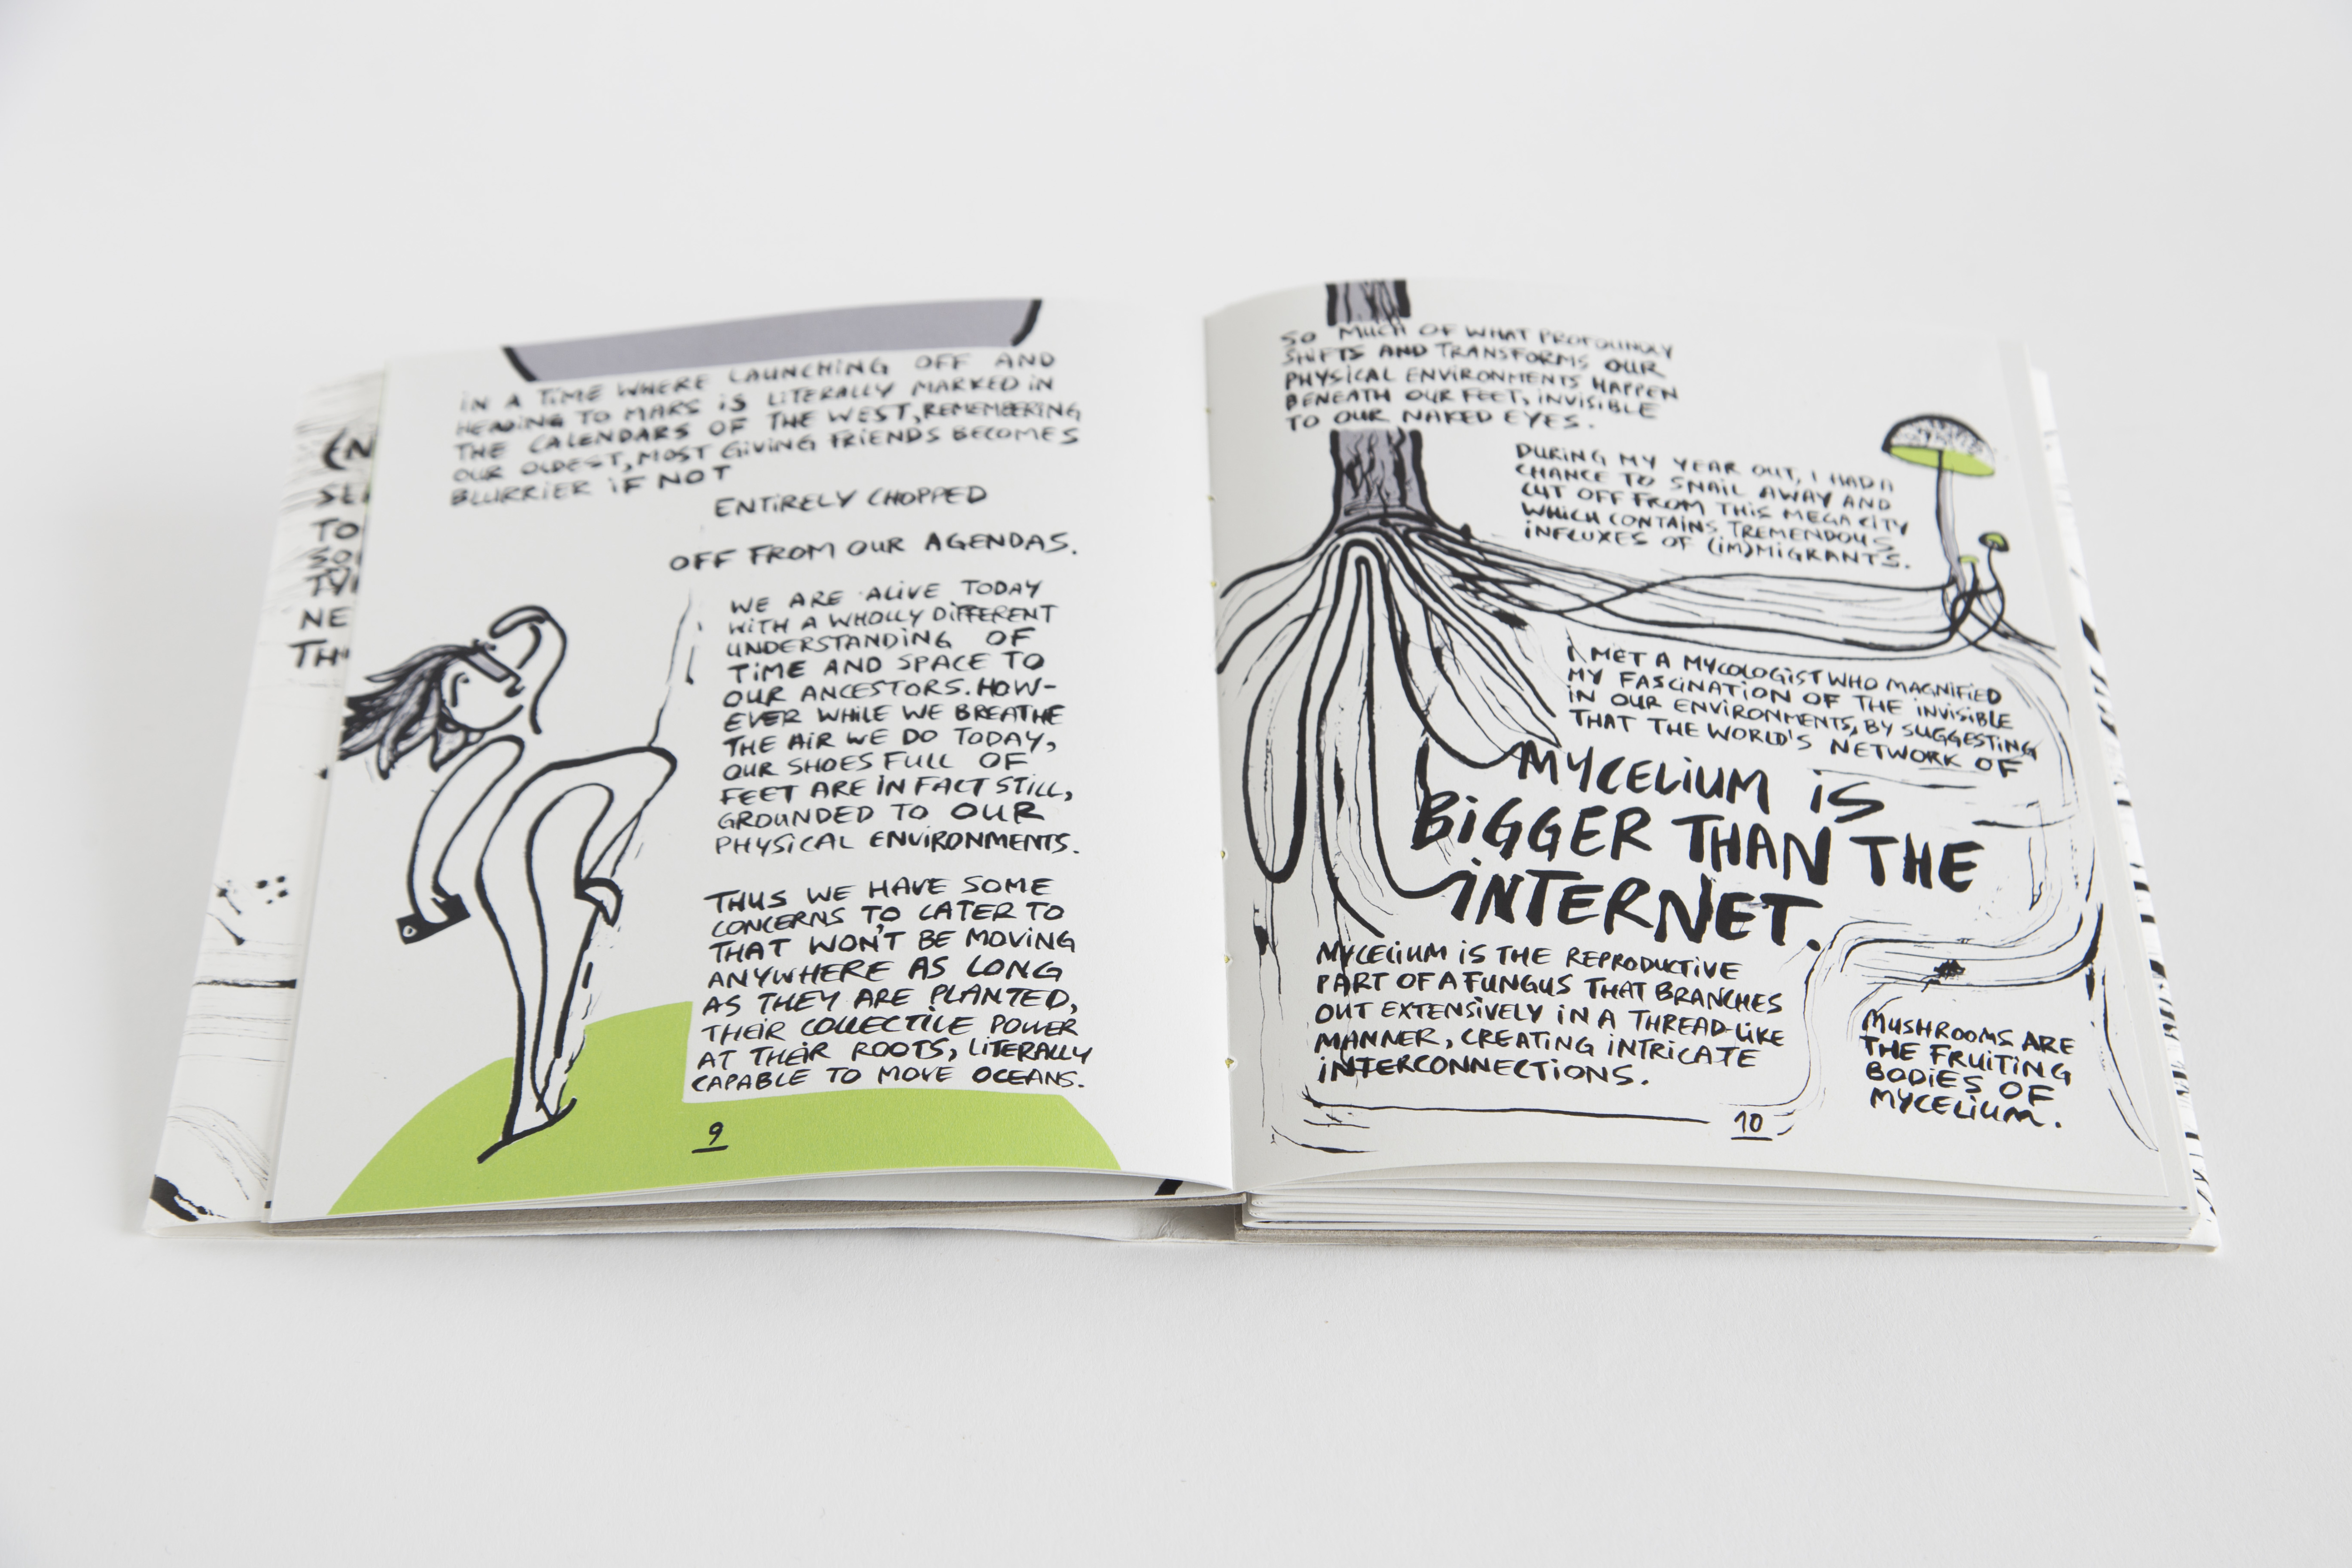 (N
SE
TO
SO
TVI
NE
TH
IN A TIME WHERE LAUNCHING OFF AND
HEADING TO MARS IS LITERALLY MARKED IN
THE CALENDARS OF THE WEST, REMEMBERING
OUR OLDEST, MOST GIVING FRIENDS BECOMES
BLURRIER IF NOT
ENTIRELY CHOPPED
OFF FROM OUR AGENDAS.
WE ARE ALIVE TODAY
WITH A WHOLLY DIFFERENT
UNDERSTANDING OF
TIME AND SPACE TO
OUR ANCESTORS. HOW-
EVER WHILE WE BREATHE
THE AIR WE DO TODAY,
OUR SHOES FULL OF
FEET ARE IN FACT STILL,
GROUNDED TO OUR
PHYSICAL ENVIRONMENTS.
THUS WE HAVE SOME
CONCERNS TO CATER TO
THAT WON'T BE MOVING
ANYWHERE AS LONG
AS THEY ARE PLANTED,
THEIR COLLECTILE POWER
AT THEIR ROOTS, LITERALLY
CAPABLE TO MOVE OCEANS.
9
SO MUCH OF WHAT PROFOUNDLY
SHIFTS AND TRANSFORMS OUR
PHYSICAL ENVIRONMENTS HAPPEN
BENEATH OUR FEET, INVISIBLE
TO OUR NAKED EYES.
DURING MY YEAR OUT, I HAD A
CHANCE TO SNAIL AWAY AND
CUT OFF FROM THIS MEGA CITY
WHICH CONTAINS TREMENDOUS
INFLUXES OF (IM)MIGRANTS.
I MET A MYCOLOGIST WHO MAGNIFIED
MY FASCINATION OF THE INVISIBLE
IN OUR ENVIRONMENTS, BY SUGGESTING
THAT THE WORLD'S NETWORK OF
MYCELIUM IS
BIGGER THAN THE
INTERNET.
MYCELIUM IS THE REPRODUCTIVE
PART OF A FUNGUS THAT BRANCHES
OUT EXTENSIVELY IN A THREAD-LIKE
MANNER, CREATING INTRICATE
INTERCONNECTIONS.
MUSHROOMS ARE
THE FRUITING
BODIES OF
MYCELIUM.
10